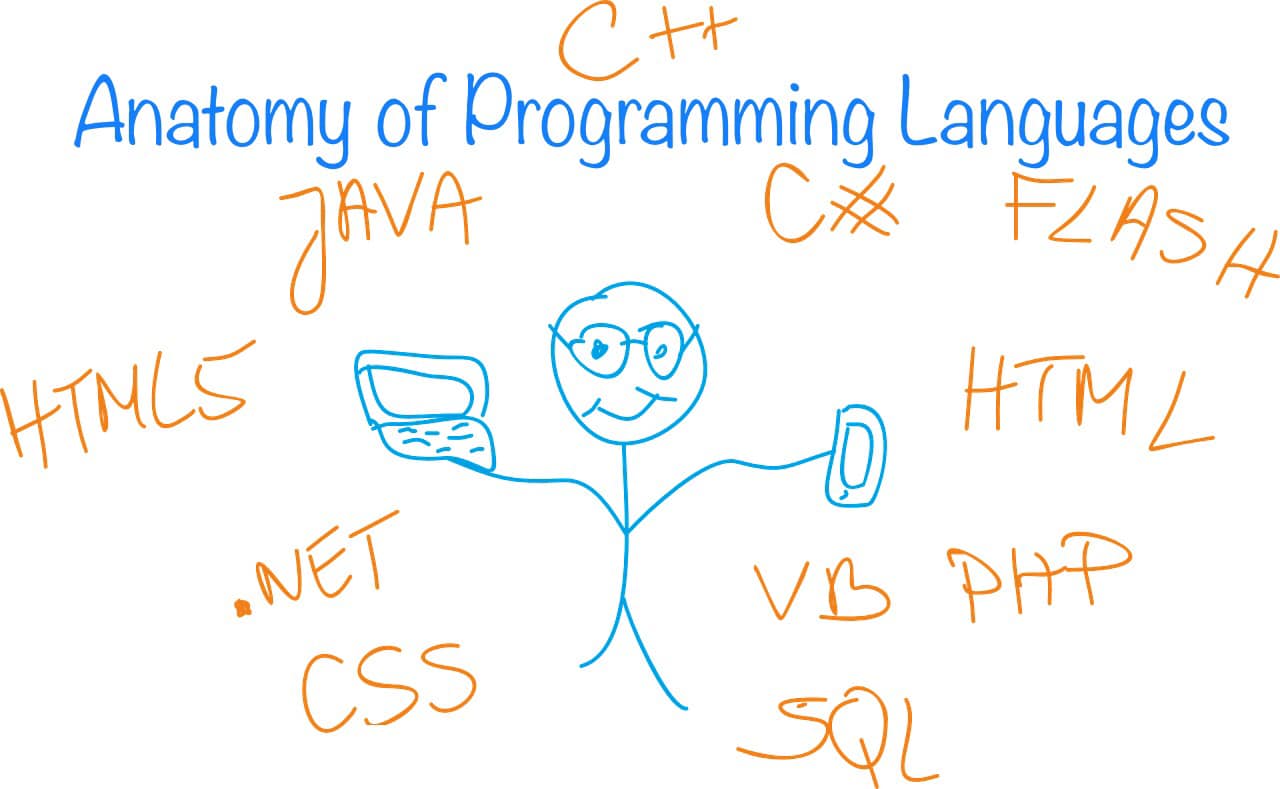 C++
Anatomy of Programming Languages
JAVA
C#
FLASH
HTML5
HTML
.NET
VB
PHP
CSS
SQL